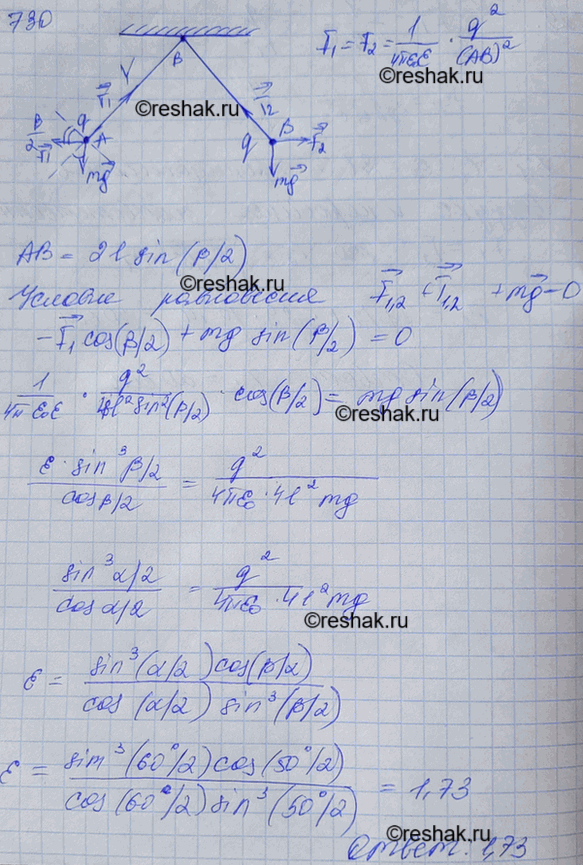 730
F₁ = F₂ = 1/(4πε₀ε) · q²/(AB)²
B
Y
T₁
T₂
©reshak.ru
q A
β/2
F₁
mg
q B F₂
mg
©reshak.ru
AB = 2l sin(β/2)
©reshak.ru
Условие равновесия F₁,₂ + T₁,₂ + mg = 0
-F₁ cos(β/2) + mg sin(β/2) = 0
1/(4πε₀ε) · q²/(4l² sin²(β/2)) · cos(β/2) = mg sin(β/2)
©reshak.ru
ε · sin³β/2 / cosβ/2 = q²/(4πε₀ · 4l² mg)
©reshak.ru
sin³α/2 / cosα/2 = q²/(4πε₀ · 4l² mg)
©reshak.ru
ε = sin³(α/2) cos(β/2) / cos(α/2) sin³(β/2)
©reshak.ru
ε = sin³(60°/2) cos(50°/2) / cos(60°/2) sin³(50°/2) = 1,73
©reshak.ru
Ответ: 1,73